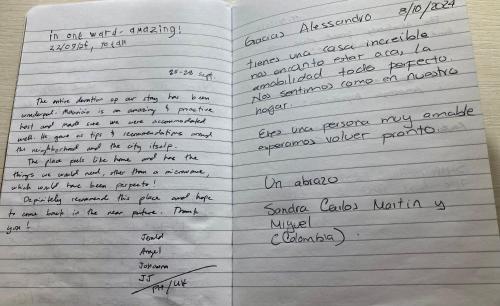 in one word - amazing!
22/09/24,
25-28 sept.
The entire duration of our stay has been
wonderful. Mauricio is an amazing & proactive
host and made sure we were accommodated
well. He gave us tips & recommendations around
the neighborhood and the city itself.
The place feels like home and has the
things we would need, other than a microwave,
which would have been perfect!
Definitely recommend this place and hope
to come back in the near future. Thank
you!
Jerald
Angel
Johanna
JJ
PH/UK
Gacias Alessandro
8/10/2024
tienes una casa increible
nos encanto estar aca, la
amabilidad todo perfecto.
Nos sentimos como en nuestro
hogar.
Eres una persona muy amable
esperamos volver pronto.
Un abrazo
Sandra Carlos Martin y
Miguel
(Colombia).